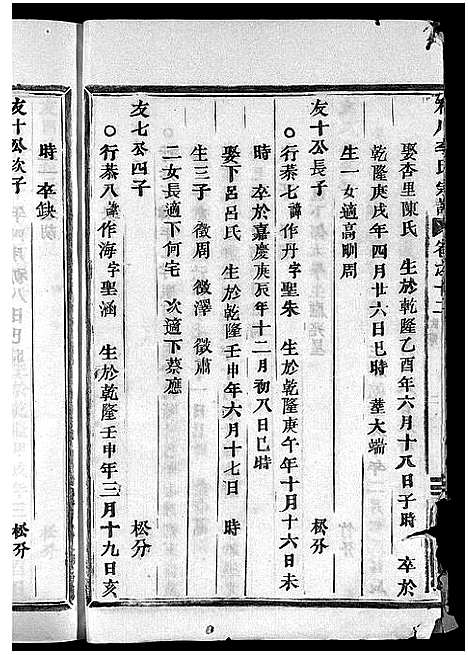 李氏宗譜 卷之十二
娶杏里陳氏 生於乾隆乙酉年六月十八日子時 卒於
乾隆庚戌年四月廿六日巳時 塟大端
生一女適高𤱶周
友十公長子 松分
行恭七諱作丹字聖朱 生於乾隆庚午年十月十六日未
時 卒於嘉慶庚辰年十二月初八日巳時
娶下呂呂氏 生於乾隆壬申年六月十七日 時
生三子 徵周 徵澤 徵肅
二女長適下何宅 次適下蔡應
友七公四子 松分
行恭八諱作海字聖涵 生於乾隆壬申年三月十九日亥
時 卒缺
友十公次子 松分